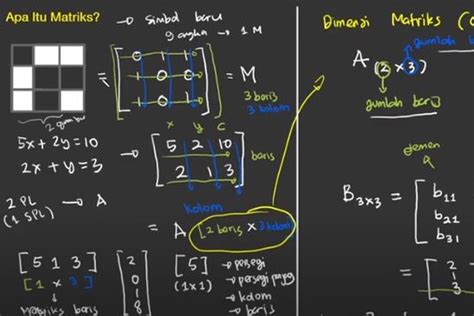 Apa Itu Matriks?
→ Simbol baru
9 angka → 1 M
= [0 1 1
1 0 0
1 0 1] = M
3 baris
3 kolom
2 gambar
5x + 2y = 10
2x + y = 3
x y c
→ [5 2 10
2 1 3] baris
kolom
2 PL
(1 SPL) → A
= A [2 baris x 3 kolom]
[5 1 3]
[1 x 3]
Matriks baris
[2
0
1
8
[5] → persegi
(1x1) → persegi
→ kolom
→ baris
Dimensi Matriks (
jumlah
A (2 x 3)
jumlah baris
elemen
B 3x3 = [b11
b21
b31
= [2
1
3